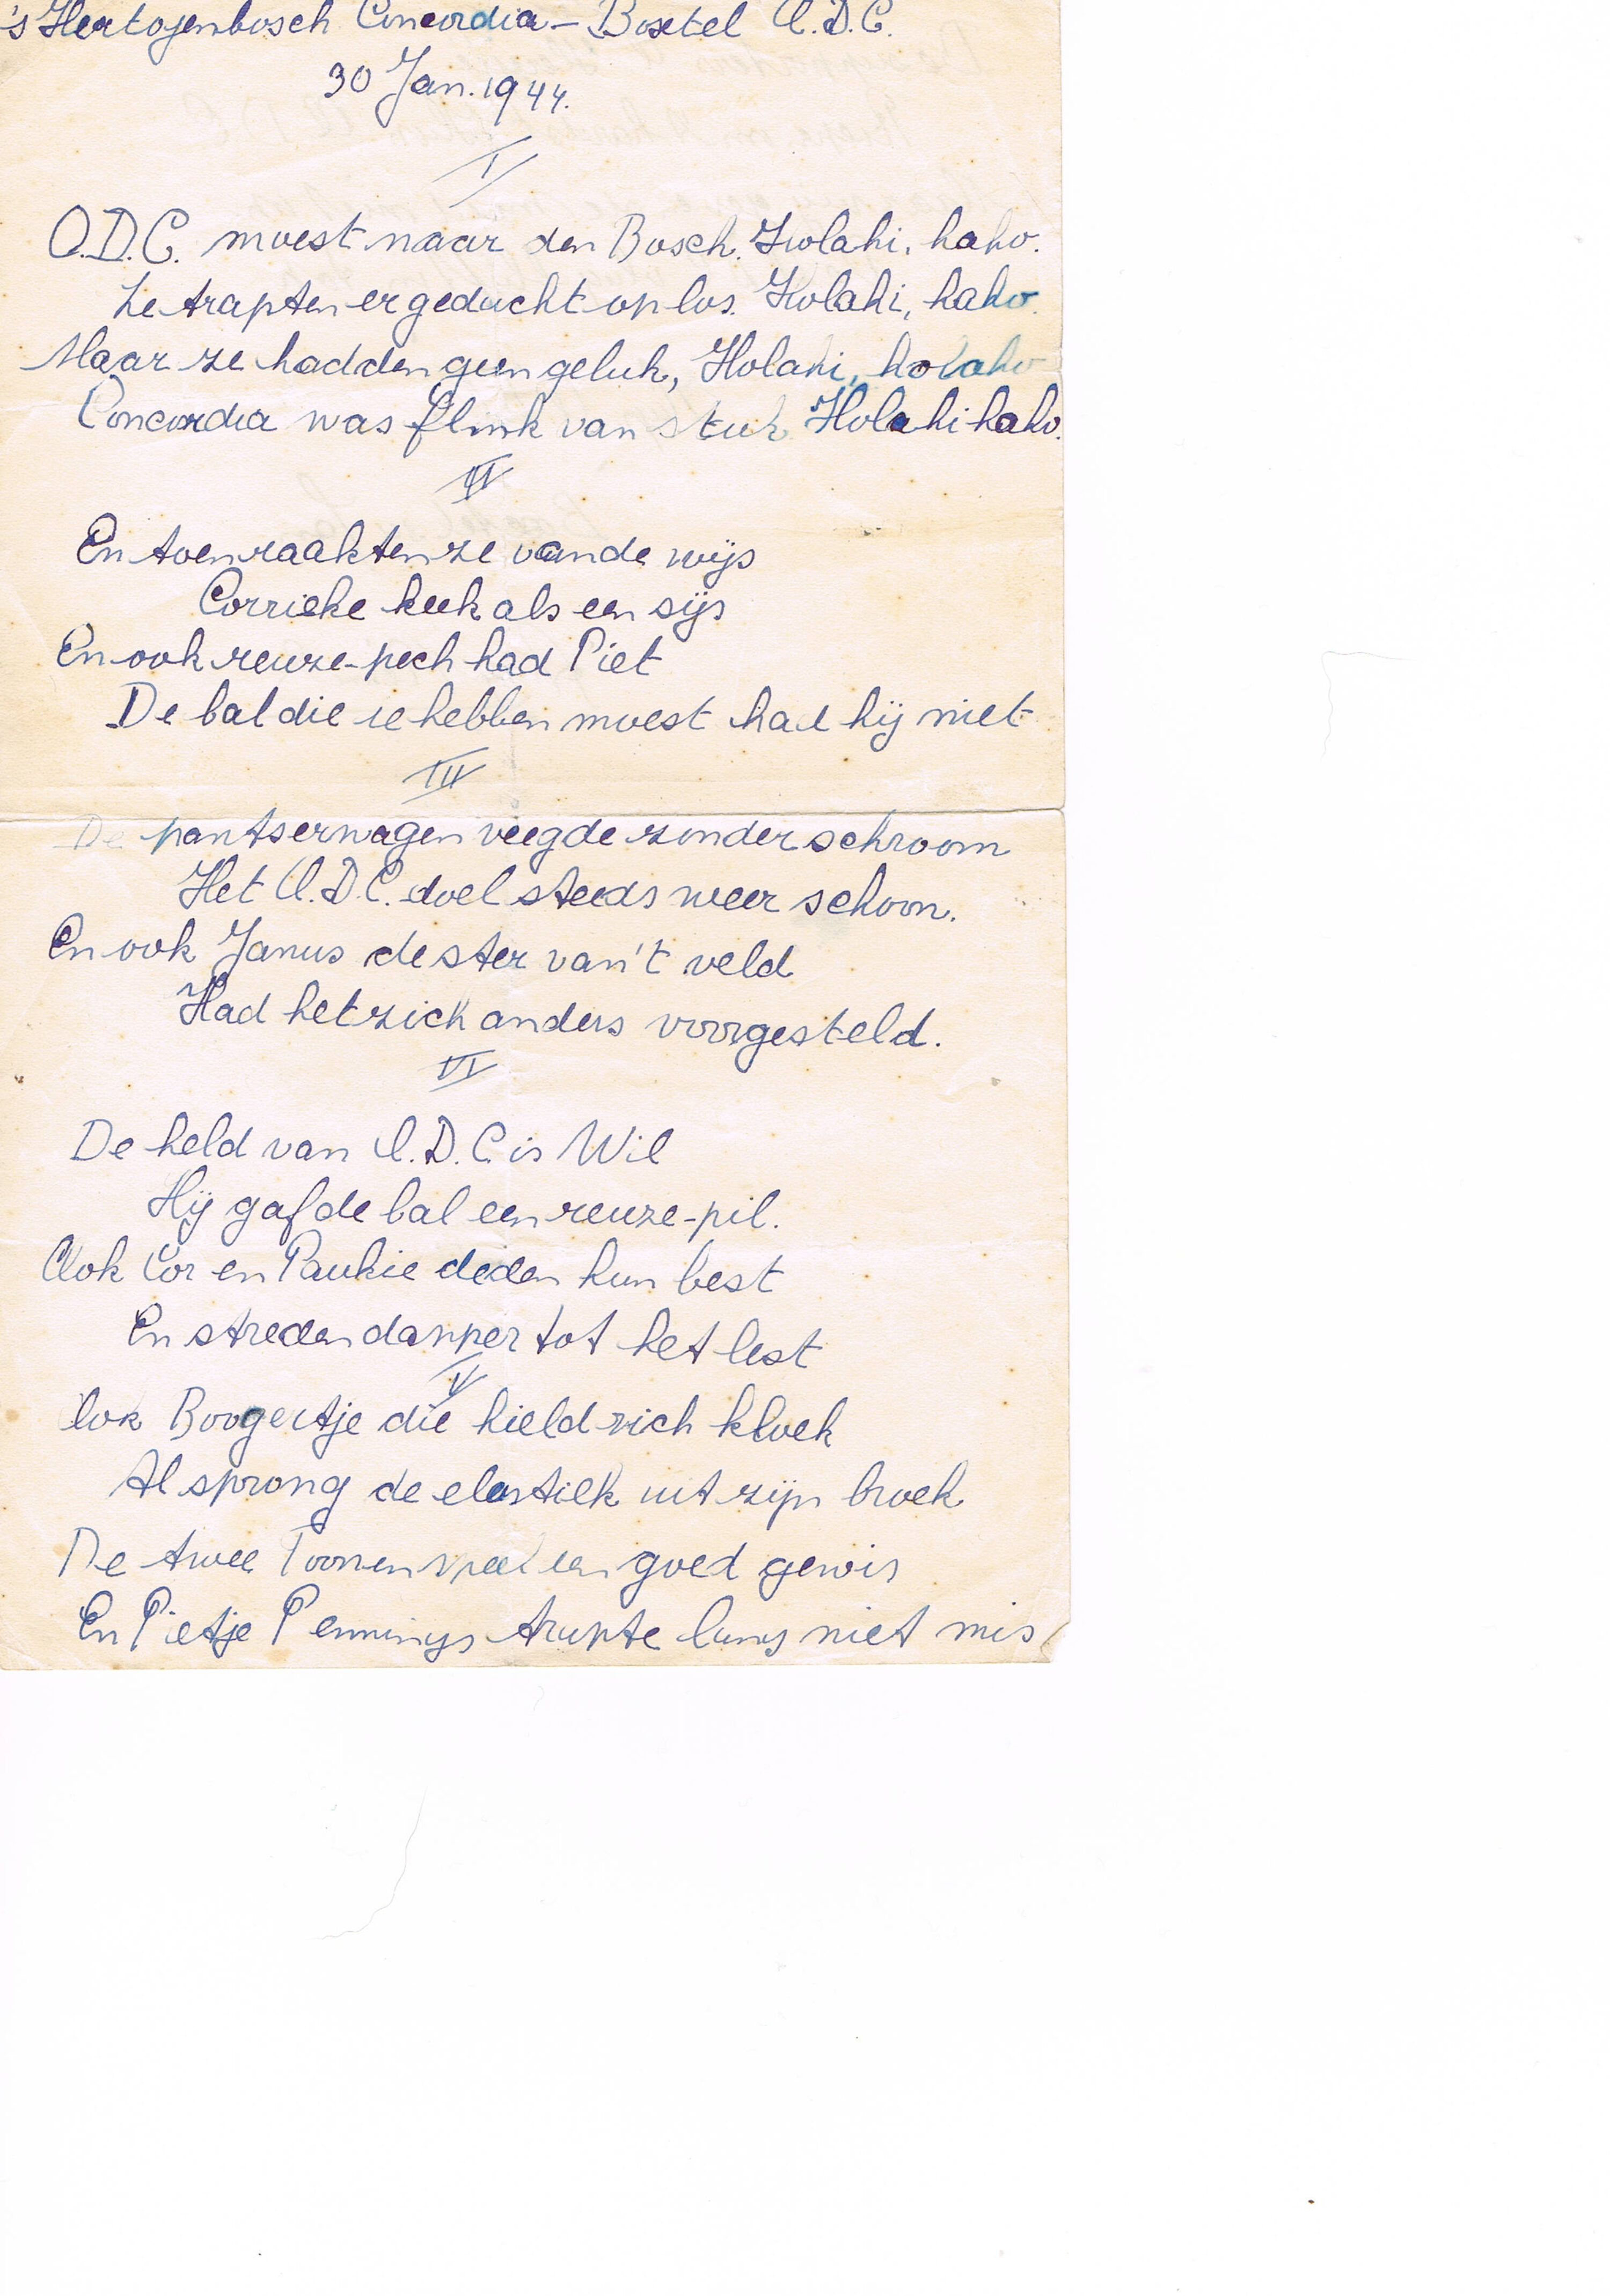 's Hertogenbosch Concordia - Boxtel O.D.C.
30 Jan. 1944.
I
O.D.C. moest naar den Bosch. Holahi, haho.
Ze trapten er geducht op los. Holahi, haho.
Maar ze hadden geen geluk, Holahi, holaho
Concordia was flink van stuk Holahi haho.
II
En toen raakten ze van de wijs
Corrieke keek als een sijs
En ook reuze-pech had Piet
De bal die ie hebben moest had hij niet
III
De pantserwagen veegde zonder schroom
Het O.D.C. doel steeds weer schoon.
En ook Janus de ster van 't veld
Had het zich anders voorgesteld.
VI
De held van O.D.C. is Wil
Hij gaf de bal een reuze-pil.
Ook Cor en Paukie deden hun best
En streden dapper tot het lest
V
Ook Boogertje die hield zich kloek
Al sprong de elastiek uit zijn broek
De twee Toonen speelden goed gewis
En Pietje Pennings trapte lang niet mis